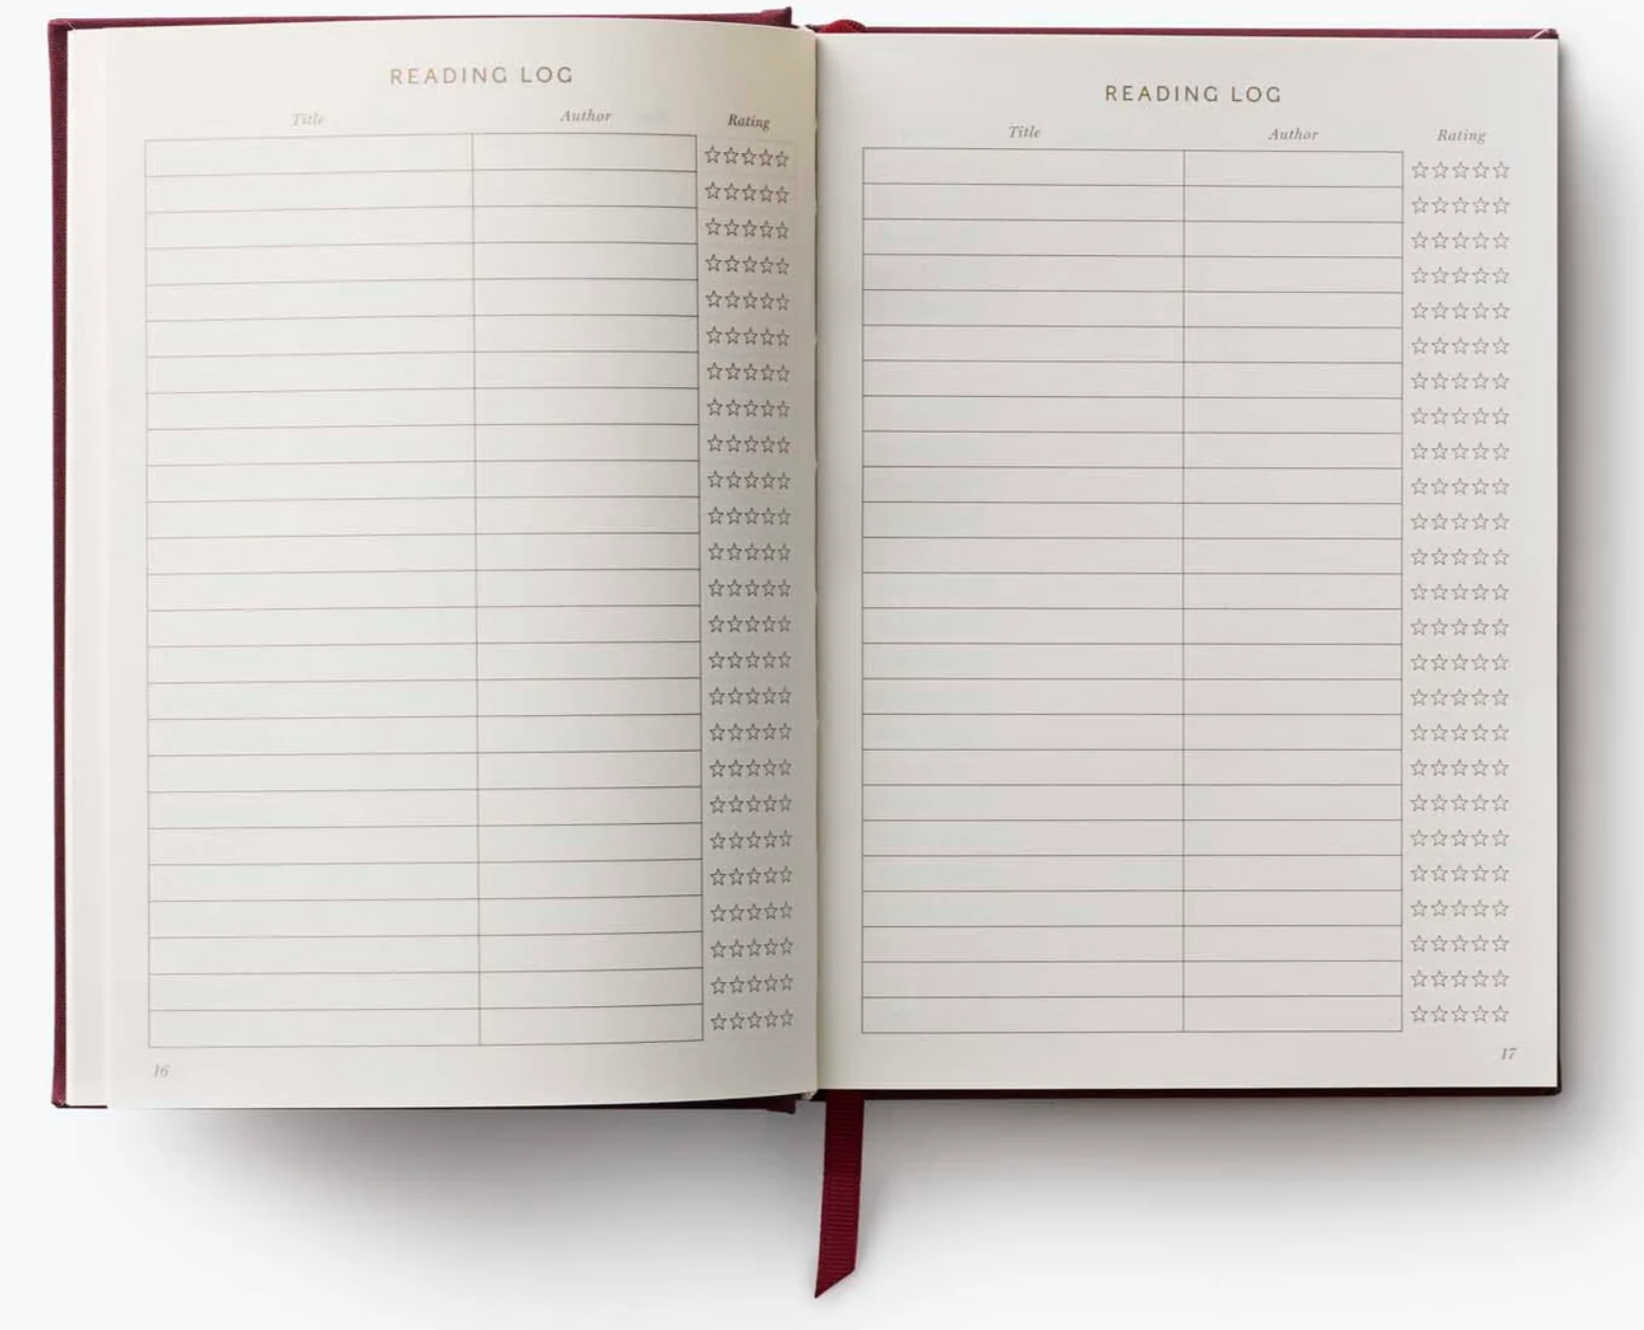 READING LOG
Title Author Rating
16
READING LOG
Title Author Rating
17